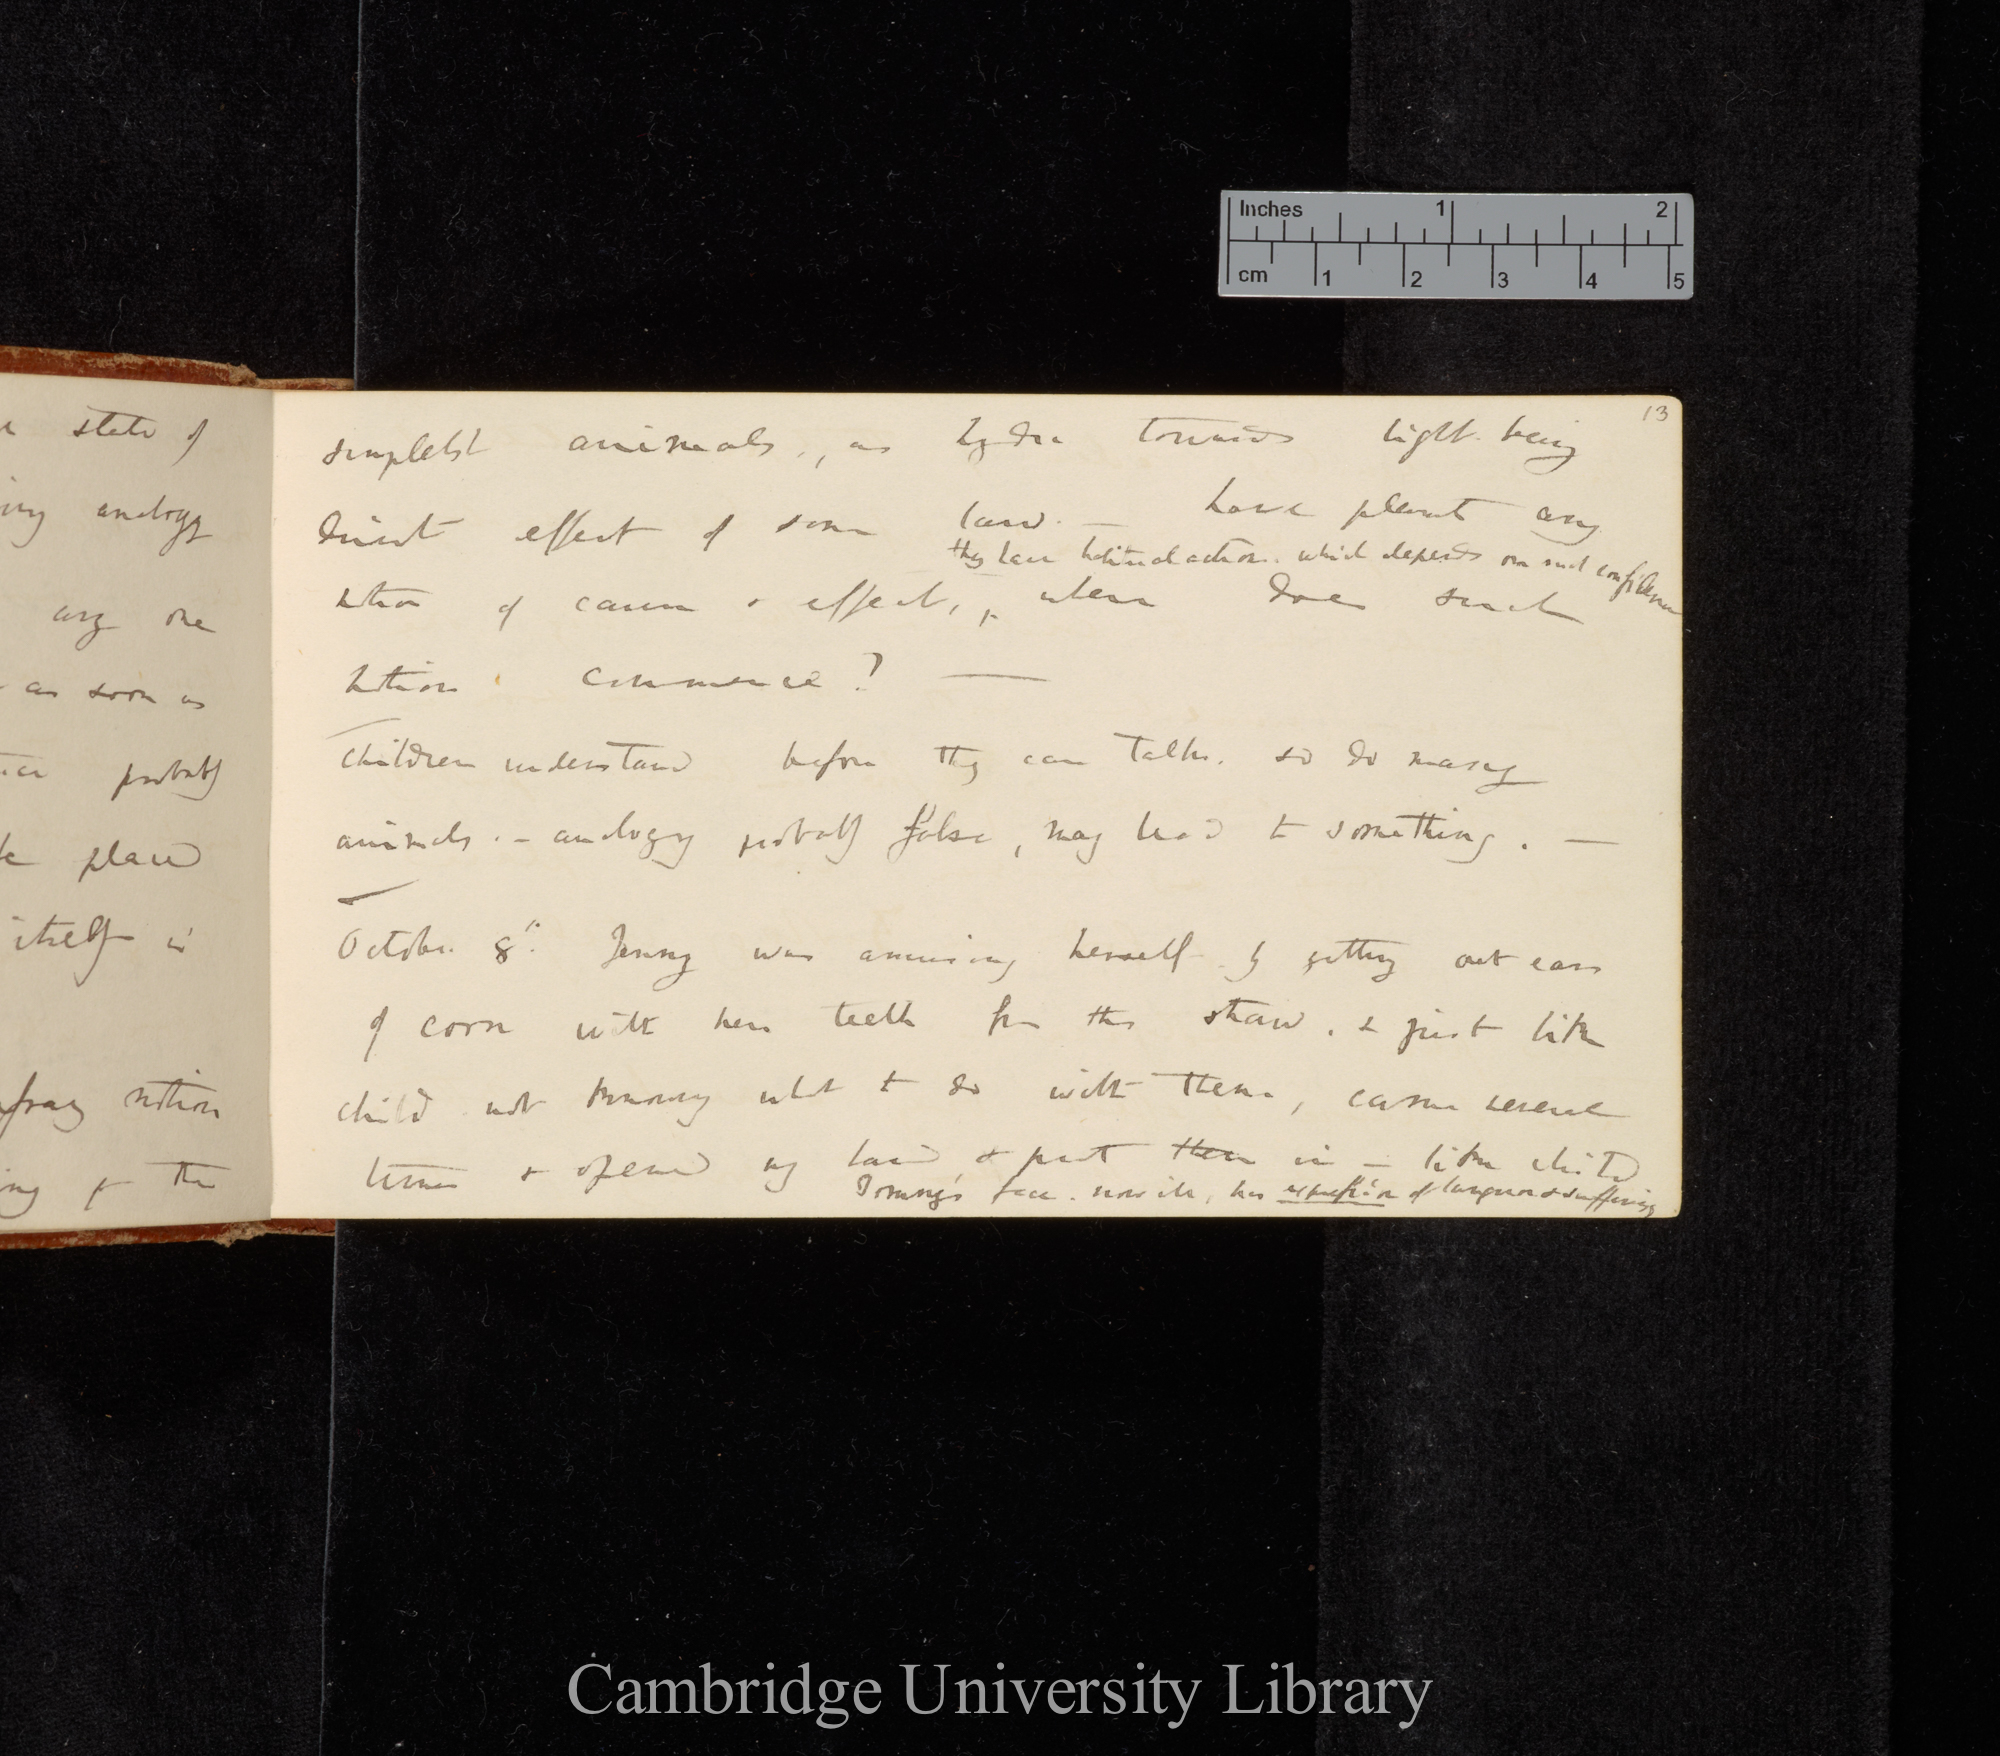 state of
analogy
any one
as soon as
probably
place
itself is
notion
the
13
simplest animals, as hydra towards light being
direct effect of some law. — have plants any
they have habitual action. which depends on such confidence
notion of cause & effect, when does such
notion commence? —
Children understand before they can talk. so do many
animals. — analogy probably false, may lead to something. —
October 8th. Jenny was amusing herself by getting out ears
of corn with her teeth from the straw, & just like
child not knowing what to do with them, came several
times & opened my hand, & put them in — like child
Tommy's face. now ill, has expression of languor & suffering
Inches 1 2
cm 1 2 3 4 5
Cambridge University Library